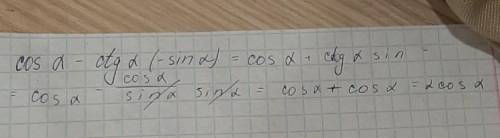 cos α - ctg α (-sin α) = cos α + ctg α sin =
= cos α - cos α / sin α sin α = cos α + cos α = 2cos α